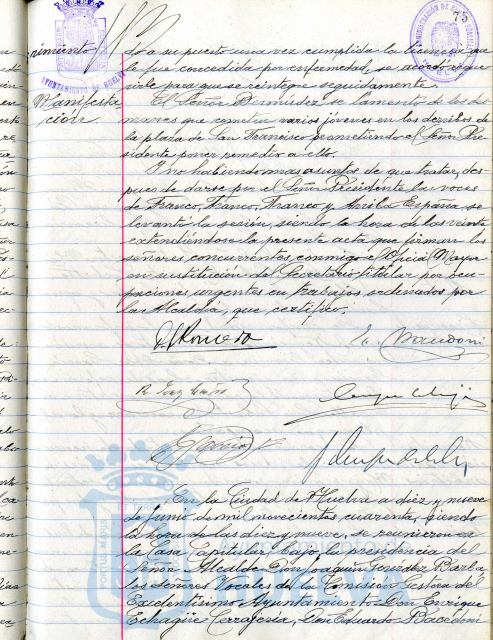 nimiento
AYUNTAMIENTO DE HUELVA
Manifesta
ción
75
do a su puesto una vez cumplida la licencia que
le fue concedida por enfermedad, se acordó
para que se reintegre seguidamente.
El Señor Bermúdez se lamentó de los des-
manes que cometen varios jóvenes en los derribos de
la plaza de San Francisco prometiendo el Señor Pre-
sidente poner remedio a ello.
Y no habiendo mas asuntos de que tratar, des-
pues de darse por el Señor Presidente las voces
de Franco, Franco, Franco y Arriba España, se
levantó la sesión, siendo la hora de las veinte
extendiéndose la presente acta que firman los
señores concurrentes conmigo el Oficial Mayor
en sustitución del Secretario titular por ocu-
paciones urgentes en trabajos ordenados por
la Alcaldía, que certifico.
En la Ciudad de Huelva a diez y nueve
de Junio de mil novecientos cuarenta, siendo
la hora de las diez y nueve, se reunieron en
la Casa Capitular, bajo la presidencia del
Señor Alcalde Don Joaquín González Barba
los señores Vocales de la Comisión Gestora del
Excelentísimo Ayuntamiento Don Enrique
Echagüe Don Eduardo